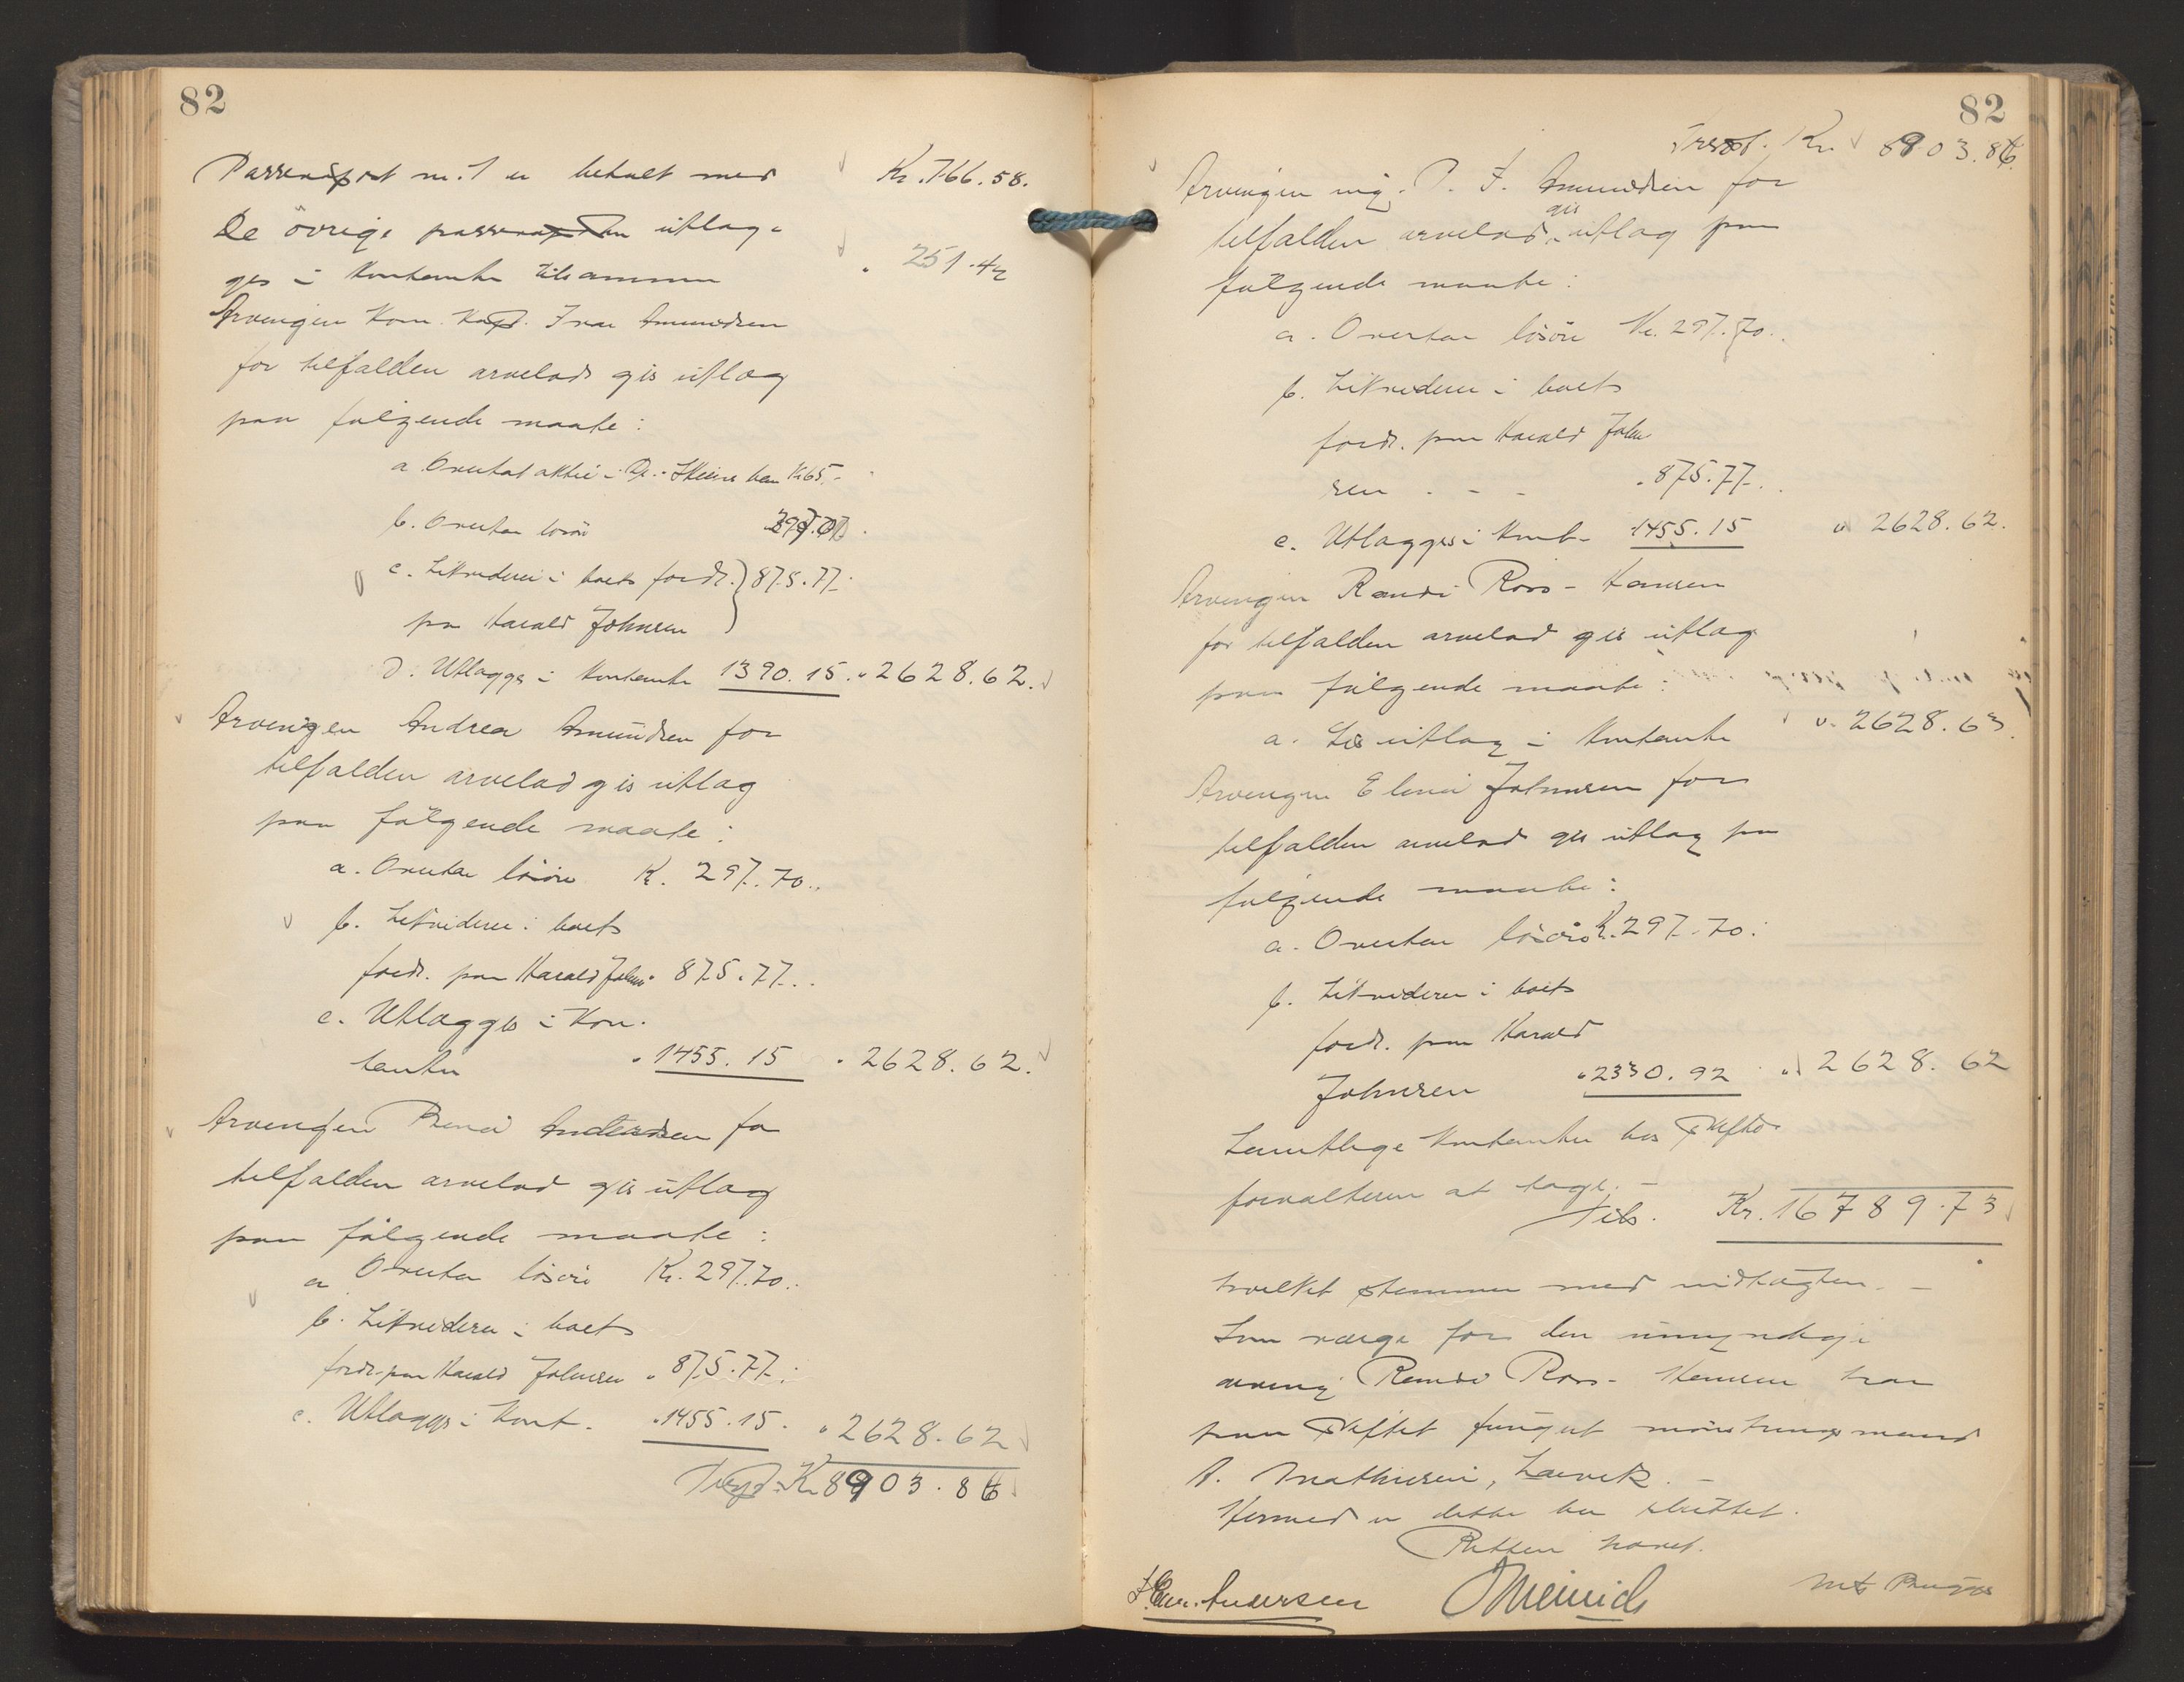 82
Passivapost nr. 1 er betalt med Kr. 766.58.
De övrige passivaposter utlæg-
ges i kontanter tilsammen " 251.42
Arvingen Kom. Kapt. Ivar Amundsen
for tilfalden arvelod gis utlæg
paa følgende maate:
a. Overtat aktie i Kr. 65.-
b. Overtar løsøre 297.70
c. Likviderer i boets fordr. } 875.77
paa Harald Johnsen
d. Utlægges i kontanter 1390.15 " 2628.62.
Arvingen Andrea Amundsen for
tilfalden arvelod gis utlæg
paa følgende maate:
a. Overtar løsøre K. 297.70.
b. Likviderer i boets
fordr. paa Harald Johns. 875.77.
c. Utlægges i kon-
tanter " 1455.15 " 2628.62.
Arvingen Andersen for
tilfalden arvelod gis utlæg
paa følgende maate:
a Overtar løsøre Kr. 297.70.
b. Likviderer i boets
fordr. paa Harald Johnsen " 875.77.
c. Utlægges i kont. " 1455.15. " 2628.62
Transp. Kr. 8903.86
82
Transp. Kr. 8903.86
Arvingen ing. P. F. Amundsen for
tilfalden arvelod gis utlæg paa
følgende maate:
a. Overtar løsøre Kr. 297.70.
b. Likviderer i boets
fordr. paa Harald John
sen - - " 875.77.
c. Utlægges i kont. 1455.15 " 2628.62.
Arvingen Randi Roos-Hansen
for tilfalden arvelod gis utlæg
paa følgende maate:
a. Gis utlæg i kontanter " 2628.63.
Arvingen Johnsen for
tilfalden arvelod gis utlæg paa
følgende maate:
a. Overtar løsøre K. 297.70.
b. Likviderer i boets
fordr. paa Harald
Johnsen " 2330.92 " 2628.62
Samtlige kontanter hos skifte-
forvalteren at hæve. -
Tils. Kr. 16789.73
hvilket stemmer med indtægten. -
Som værge for den umyndige
arving Randi Roos-Hansen har
paa skiftet fungert mönstringsmand
A. Mathiesen, Larvik. -
Hermed er dette bo sluttet.
Retten hævet.
Andersen